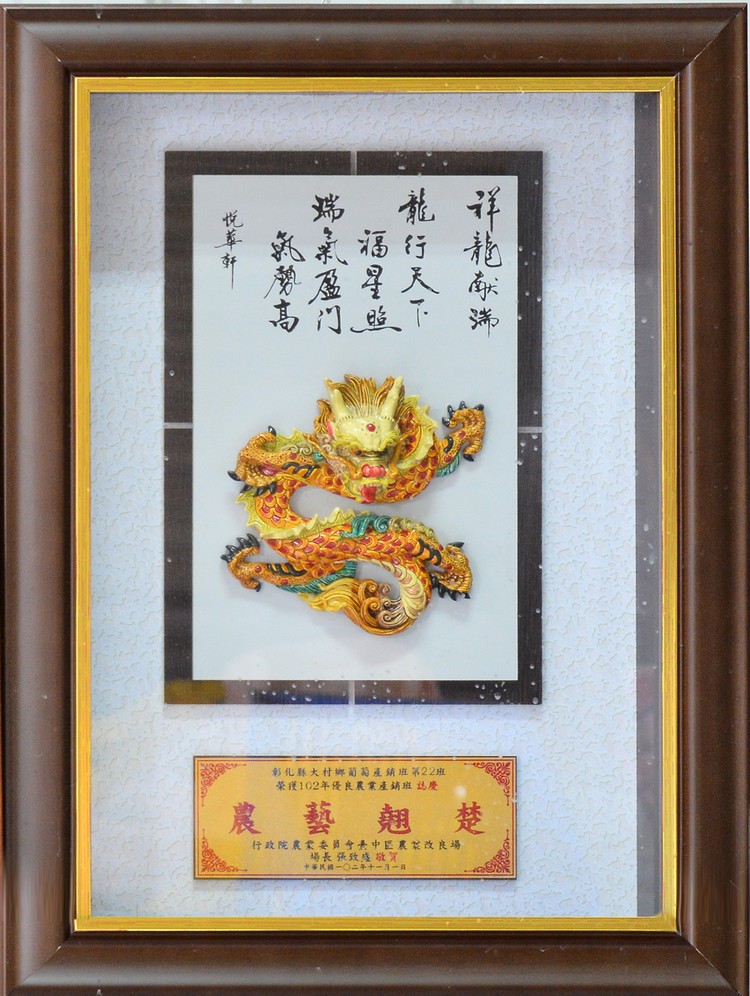 祥龍献瑞
龍行天下
福星照
瑞氣盈門
氣勢高
悅華軒
彰化縣大村鄉葡萄產銷班第22班
榮獲102年優良農業產銷班 誌慶
農藝翹楚
行政院農業委員會臺中區農業改良場
場長 張致盛 敬賀
中華民國一〇二年十一月一日